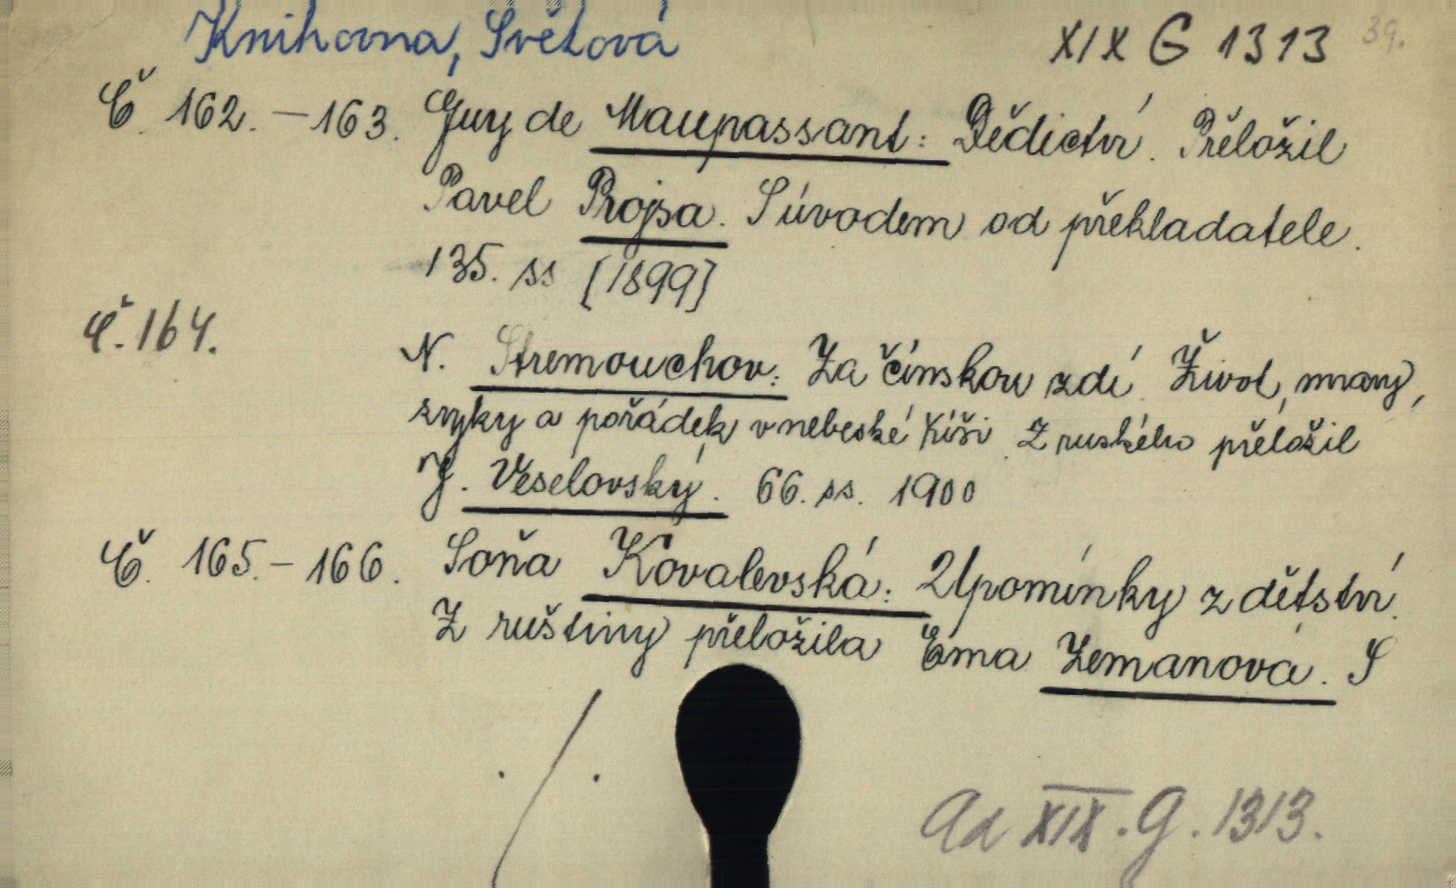 Knihovna, Světová XIX G 1313 39.
Č. 162.-163. Guy de Maupassant: Dědictví. Přeložil
Pavel Projsa. S úvodem od překladatele.
135. ss [1899]
č. 164.
N. Stremouchov: Za čínskou zdí. Život, mravy,
zvyky a pořádek v nebeské říši. Z ruského přeložil
J. Veselovský. 66. ss. 1900
Č. 165.-166. Soňa Kovalevská: Upomínky z dětství.
Z ruštiny přeložila Ema Zemanová. S
./.
Ad XIX. G. 1313.